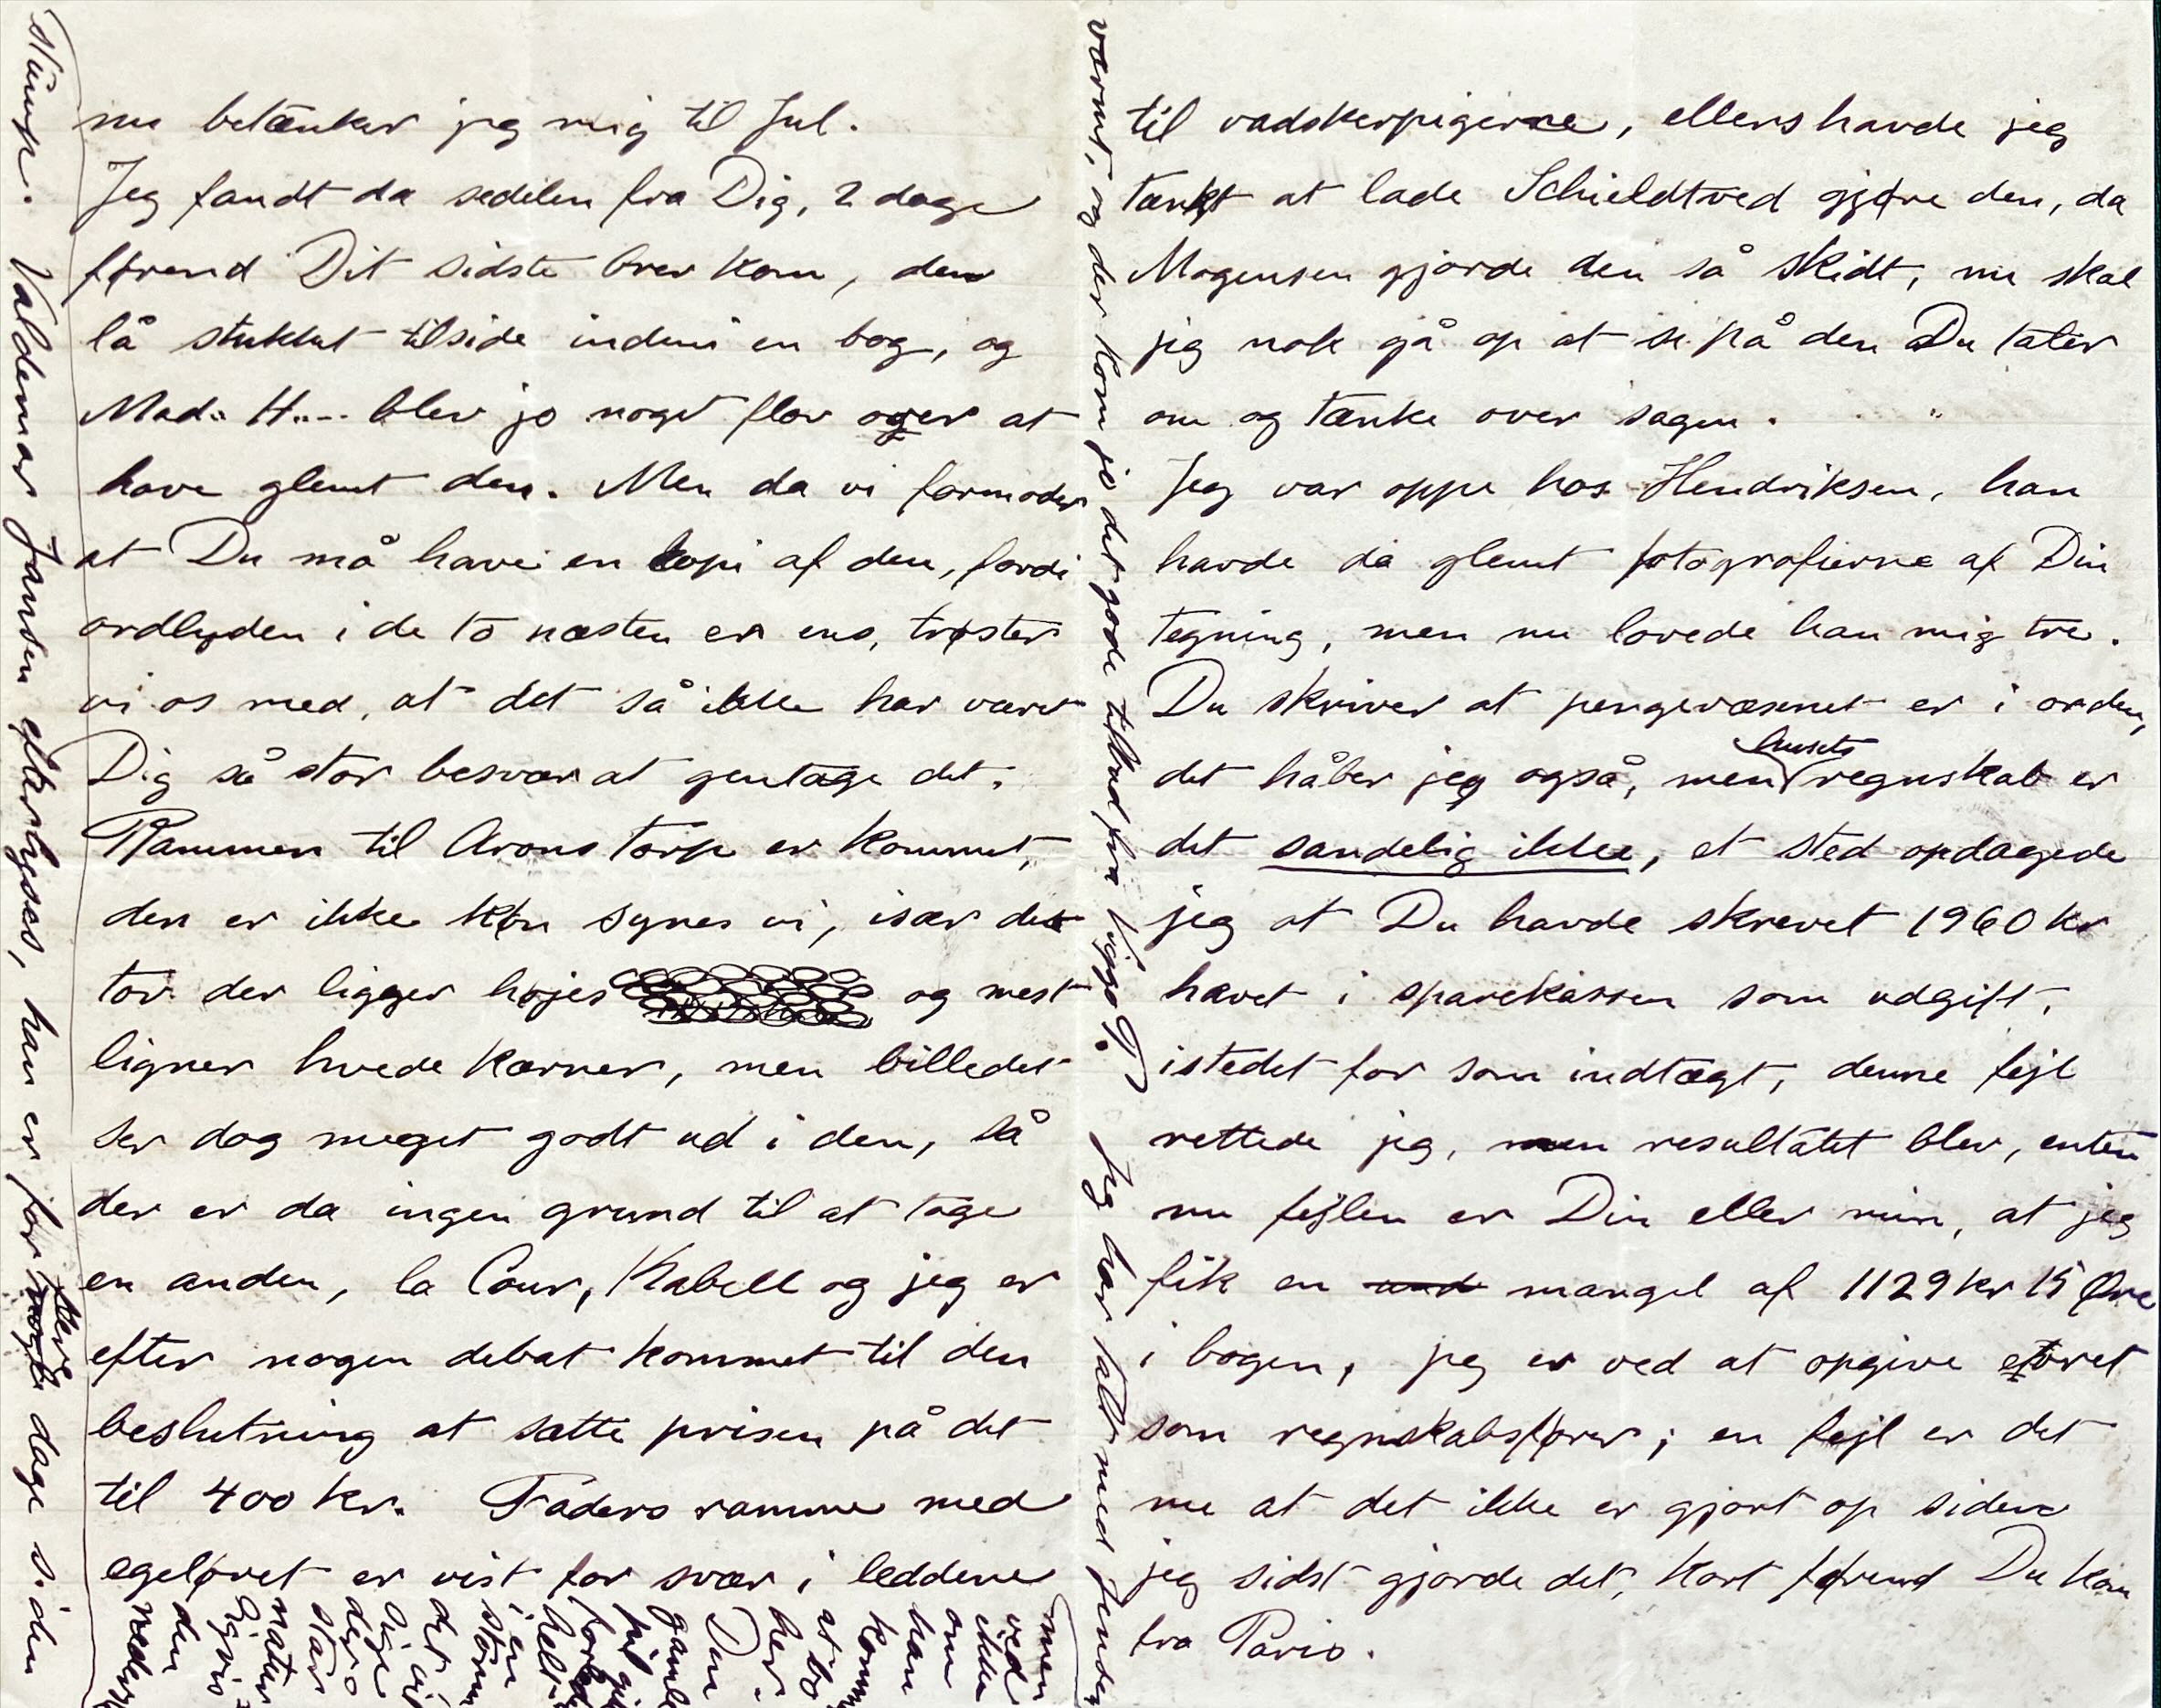 nu betænker jeg mig til Jul.
Jeg fandt da sedelen fra Dig, 2 dage
førend Dit sidste brev kom, den
lå stukket tilside indeni en bog, og
Mad.. H.... blev jo noget flov over at
have glemt den. Men da vi formoder
at Du må have en kopi af den, fordi
ordlyden i de to næsten er ens, trøster
vi os med, at det så ikke har været
Dig så stor besvær at gentage det.
Rammen til Aronstorp er kommet,
den er ikke køn synes vi, især det
tov der ligger højest og mest
ligner hvede kærner, men billedet
ser dog meget godt ud i den, så
der er da ingen grund til at tage
en anden, la Cour, Kabell og jeg er
efter nogen debat kommet til den
beslutning at sætte prisen på det
til 400 kr. Faders ramme med
egeløvet er vist for svær i leddene
til vadskerpigerne, ellers havde jeg
tænkt at lade Schieldtved gjøre den, da
Mogensen gjorde den så skidt, nu skal
jeg nok gå op at se på den Du taler
om og tænke over sagen.
Jeg var oppe hos Hendriksen, han
havde da glemt fotografierne af Din
tegning, men nu lovede han mig tre.
Du skriver at pengevæsenet er i orden,
det håber jeg også, men husets regnskab er
det sandelig ikke, et sted opdagede
jeg at Du havde skrevet 1960 kr
hævet i sparekassen som udgift,
istedet for som indtægt, denne fejl
rettede jeg, men resultatet blev, enten
nu fejlen er Din eller min, at jeg
fik en mangel af 1129 kr 15 Øre
i bogen, jeg er ved at opgive ævret
som regnskabsfører; en fejl er det
nu at det ikke er gjort op siden
jeg sidst gjorde det, kort førend Du kom
fra Paris.
værmt, og der kom jo det gode tilbud fra Viggo P. Jeg har talt med
Valdemar Jansen efterlyses, han er for flere dage siden
men
ved
ikke
om
han
komm
at bo
her.
Den
gamle
hel
i en
storm
det
lige
ders
står
natur
den
neder